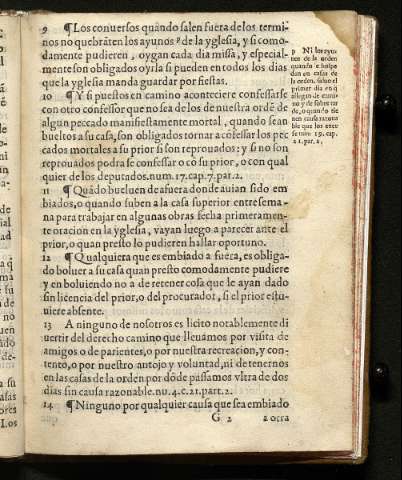 9 ¶Los conuersos quãdo salen fuera de los termi-
nos no quebrãten los ayunos ᵖ de la yglesia, y si como-
damente pudieren, oygan cada dia missa, y especial-
mente son obligados oyrla si pueden en todos los dias
que la yglesia manda guardar por fiestas.
10 ¶Y si puestos en camino aconteciere confessarse
con otro confessor que no sea de los de nuestra ordẽ de
algun peccado manifiestamente mortal, quando seãn
bueltos a su casa, son obligados tornar a cõfessar los pec
cados mortales a su prior si son reprouados: y si no son
reprouados podra se confessar o cõ su prior, o con qual
quier de los deputados. num. 17. cap. 7. par. 2.
11 ¶Quãdo bueluen de afuera donde auian sido em
biados, o quando suben a la casa superior entre sema-
na para trabajar en algunas obras fecha primeramen-
te oracion en la yglesia, vayan luego a parecer ante el
prior, o quan presto lo pudieren hallar oportuno.
12 ¶Qualquiera que es embiado a fuera, es obliga-
do boluer a su casa quan presto comodamente pudiere
y en boluiendo no a de retener cosa que le ayan dado
sin licencia del prior, o del procurador, si el prior estu-
uiere absente.
13 A ninguno de nosotros es licito notablemente di
uertir del derecho camino que lleuamos por visita de
amigos o de parientes, o por nuestra recreacion, y con-
tento, o por nuestro antojo y voluntad, ni detenernos
en las casas de la orden por dõde passamos vltra de dos
dias sin causa razonable. nu. 4. c. 21. part. 2.
14 ¶Ninguno por qualquier causa que sea embiado
G 2 a otra
p Ni los ayu-
nos de la orden
quando se hospe
dan en casas de
la orden, saluo el
primer dia en q̃
allegan de cami-
no y de sobre tar
de, o quãdo tie
nen causa razona
ble que los excu
se num. 19. cap.
21. par. 2.